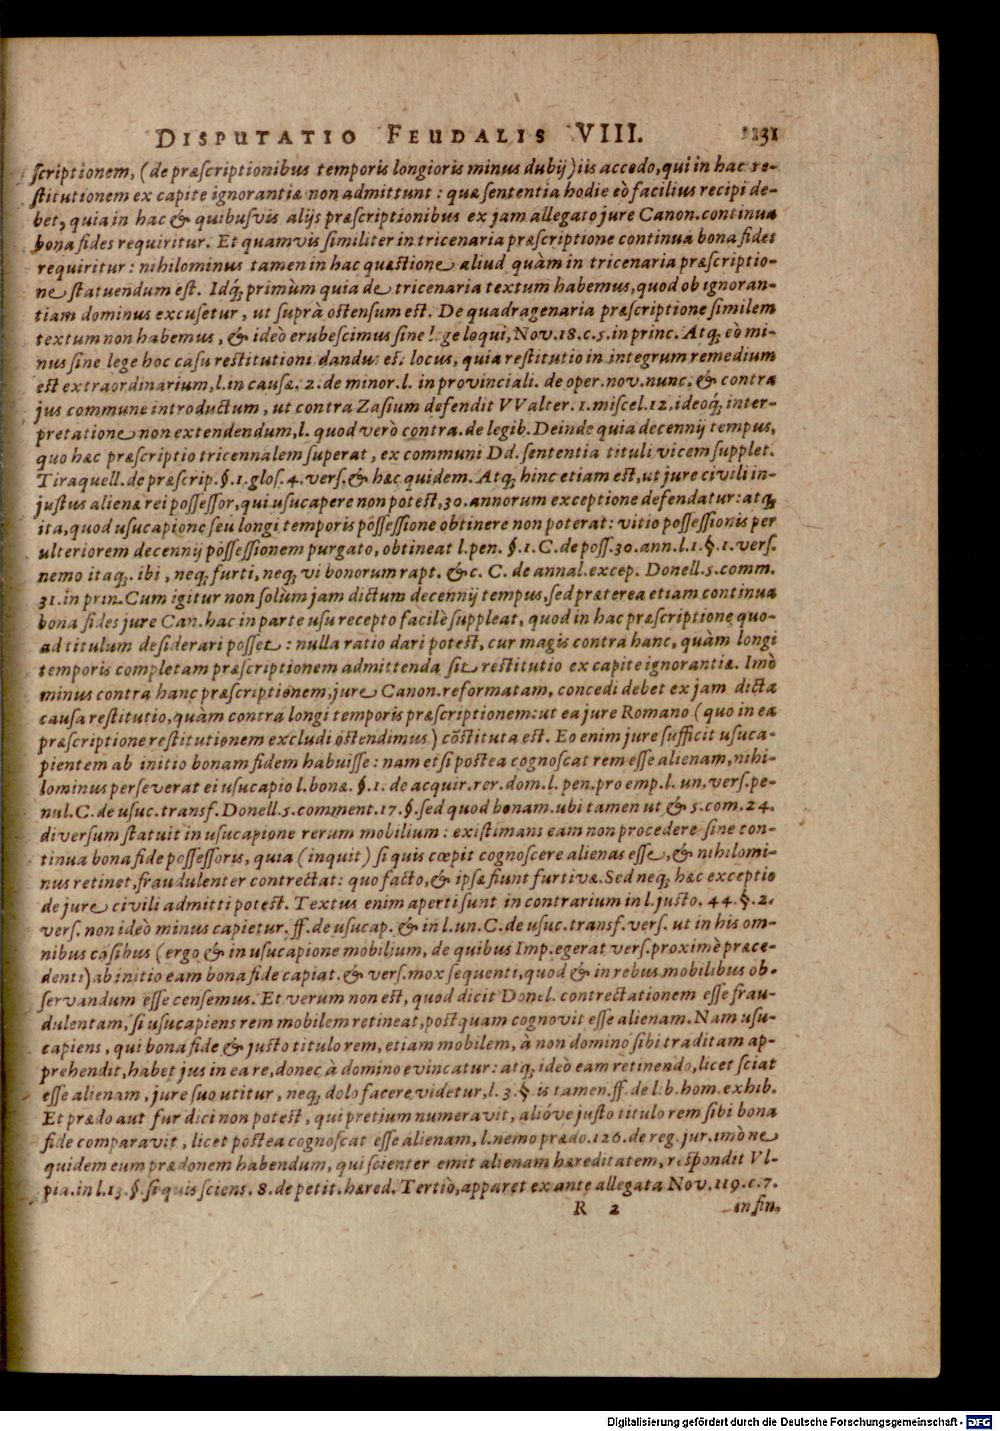 DISPUTATIO FEUDALIS VIII. 131
scriptionem, (de præscriptionibus temporis longioris minus dubij) iis accedo, qui in hac re-
stitutionem ex capite ignorantiæ non admittunt : quæ sententia hodie eò facilius recipi de-
bet, quia in hac & quibusvis alijs præscriptionibus ex jam allegato jure Canon. continua
bona fides requiritur. Et quamvis similiter in tricenaria præscriptione continua bona fides
requiritur : nihilominus tamen in hac quæstione aliud quàm in tricenaria præscriptio-
ne statuendum est. Idq́; primum quia de tricenaria textum habemus, quod ob ignoran-
tiam dominus excusetur, ut suprà ostensum est. De quadragenaria præscriptione similem
textum non habemus, & ideò erubescimus sine lege loqui, Nov. 18. c. 5. in princ. Atq; eò mi-
nus sine lege hoc casu restitutioni dandus est locus, quia restitutio in integrum remedium
est extraordinarium, l. in causæ. 2. de minor. l. in provinciali. de oper. nov. nunc. & contra
jus commune introductum, ut contra Zasium defendit VValter. 1. miscel. 12. ideoq́; inter-
pretatione non extendendum, l. quod verò contra. de legib. Deinde quia decennij tempus,
quo hæc præscriptio tricennalem superat, ex communi Dd. sententia tituli vicem supplet.
Tiraquell. de præscrip. §. 1. glos. 4. vers. & hæc quidem. Atq; hinc etiam est, ut jure civili in-
justus alienæ rei possessor, qui usucapere non potest, 30. annorum exceptione defendatur: atq;
ita, quod usucapione seu longi temporis possessione obtinere non poterat : vitio possessionis per
ulteriorem decennij possessionem purgato, obtineat l. pen. §. 1. C. de poss. 30. ann. l. 1. §. 1. vers.
nemo itaq;. ibi, neq; furti, neq; vi bonorum rapt. &c. C. de annal. excep. Donell. 5. comm.
31. in prin. Cum igitur non solùm jam dictum decennij tempus, sed præterea etiam continua
bona fides jure Can. hac in parte usu recepto facilè suppleat, quod in hac præscriptione quo-
ad titulum desiderari posset : nulla ratio dari potest, cur magis contra hanc, quàm longi
temporis completam præscriptionem admittenda sit restitutio ex capite ignorantiæ. Imò
minus contra hanc præscriptionem, jure Canon. reformatam, concedi debet ex jam dicta
causa restitutio, quàm contra longi temporis præscriptionem: ut ea jure Romano (quo in ea
præscriptione restitutionem excludi ostendimus) cõstituta est. Eo enim jure sufficit usuca-
pientem ab initio bonam fidem habuisse : nam etsi postea cognoscat rem esse alienam, nihi-
lominus perseverat ei usucapio l. bonæ. §. 1. de acquir. rer. dom. l. pen. pro emp. l. un. vers. pe-
nul. C. de usuc. transf. Donell. 5. comment. 17. §. sed quod bonam. ubi tamen ut & 5. com. 24.
diversum statuit in usucapione rerum mobilium : existimans eam non procedere sine con-
tinua bona fide possessoris, quia (inquit) si quis cœpit cognoscere alienas esse, & nihilomi-
nus retinet, fraudulenter contrectat : quo facto, & ipsæ fiunt furtivæ. Sed neq; hæc exceptio
de jure civili admitti potest. Textus enim aperti sunt in contrarium in l. justo. 44. §. 2.
vers. non ideò minus capietur. ff. de usucap. & in l. un. C. de usuc. transf. vers. ut in his om-
nibus casibus (ergo & in usucapione mobilium, de quibus Imp. egerat vers. proximè præce-
denti) ab initio eam bona fide capiat. & vers. mox sequenti, quod & in rebus mobilibus ob-
servandum esse censemus. Et verum non est, quod dicit Donel. contrectationem esse frau-
dulentam, si usucapiens rem mobilem retineat, postquam cognovit esse alienam. Nam usu-
capiens, qui bona fide & justo titulo rem, etiam mobilem, à non domino sibi traditam ap-
prehendit, habet jus in ea re, donec à domino evincatur : atq; ideò eam retinendo, licet sciat
esse alienam, jure suo utitur, neq; dolo facere videtur, l. 3. §. is tamen. ff. de lib. hom. exhib.
Et prædo aut fur dici non potest, qui pretium numeravit, alióve justo titulo rem sibi bona
fide comparavit, licet postea cognoscat esse alienam, l. nemo prædo. 126. de reg. jur. imò ne
quidem eum prædonem habendum, qui scienter emit alienam hæreditatem, respondit Vl-
pia. in l. 13. §. si quis sciens. 8. de petit. hæred. Tertiò, apparet ex ante allegata Nov. 119. c. 7.
R 2 in fin.
Digitalisierung gefördert durch die Deutsche Forschungsgemeinschaft - DFG